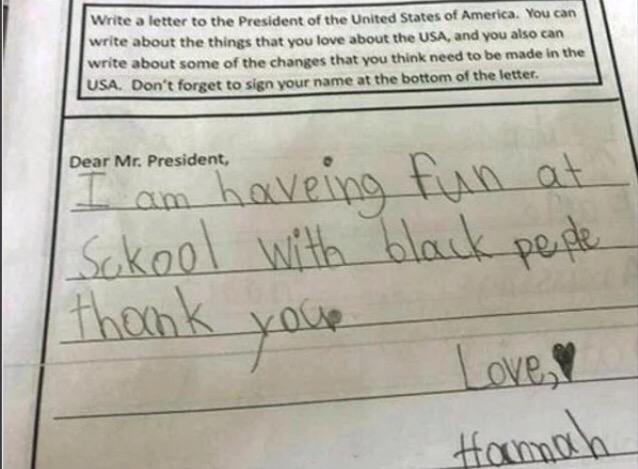 Write a letter to the President of the United States of America. You can
write about the things that you love about the USA, and you also can
write about some of the changes that you think need to be made in the
USA. Don't forget to sign your name at the bottom of the letter.
Dear Mr. President,
I am haveing fun at
Sckool with black peple
thank you
Love,♥
Hannah